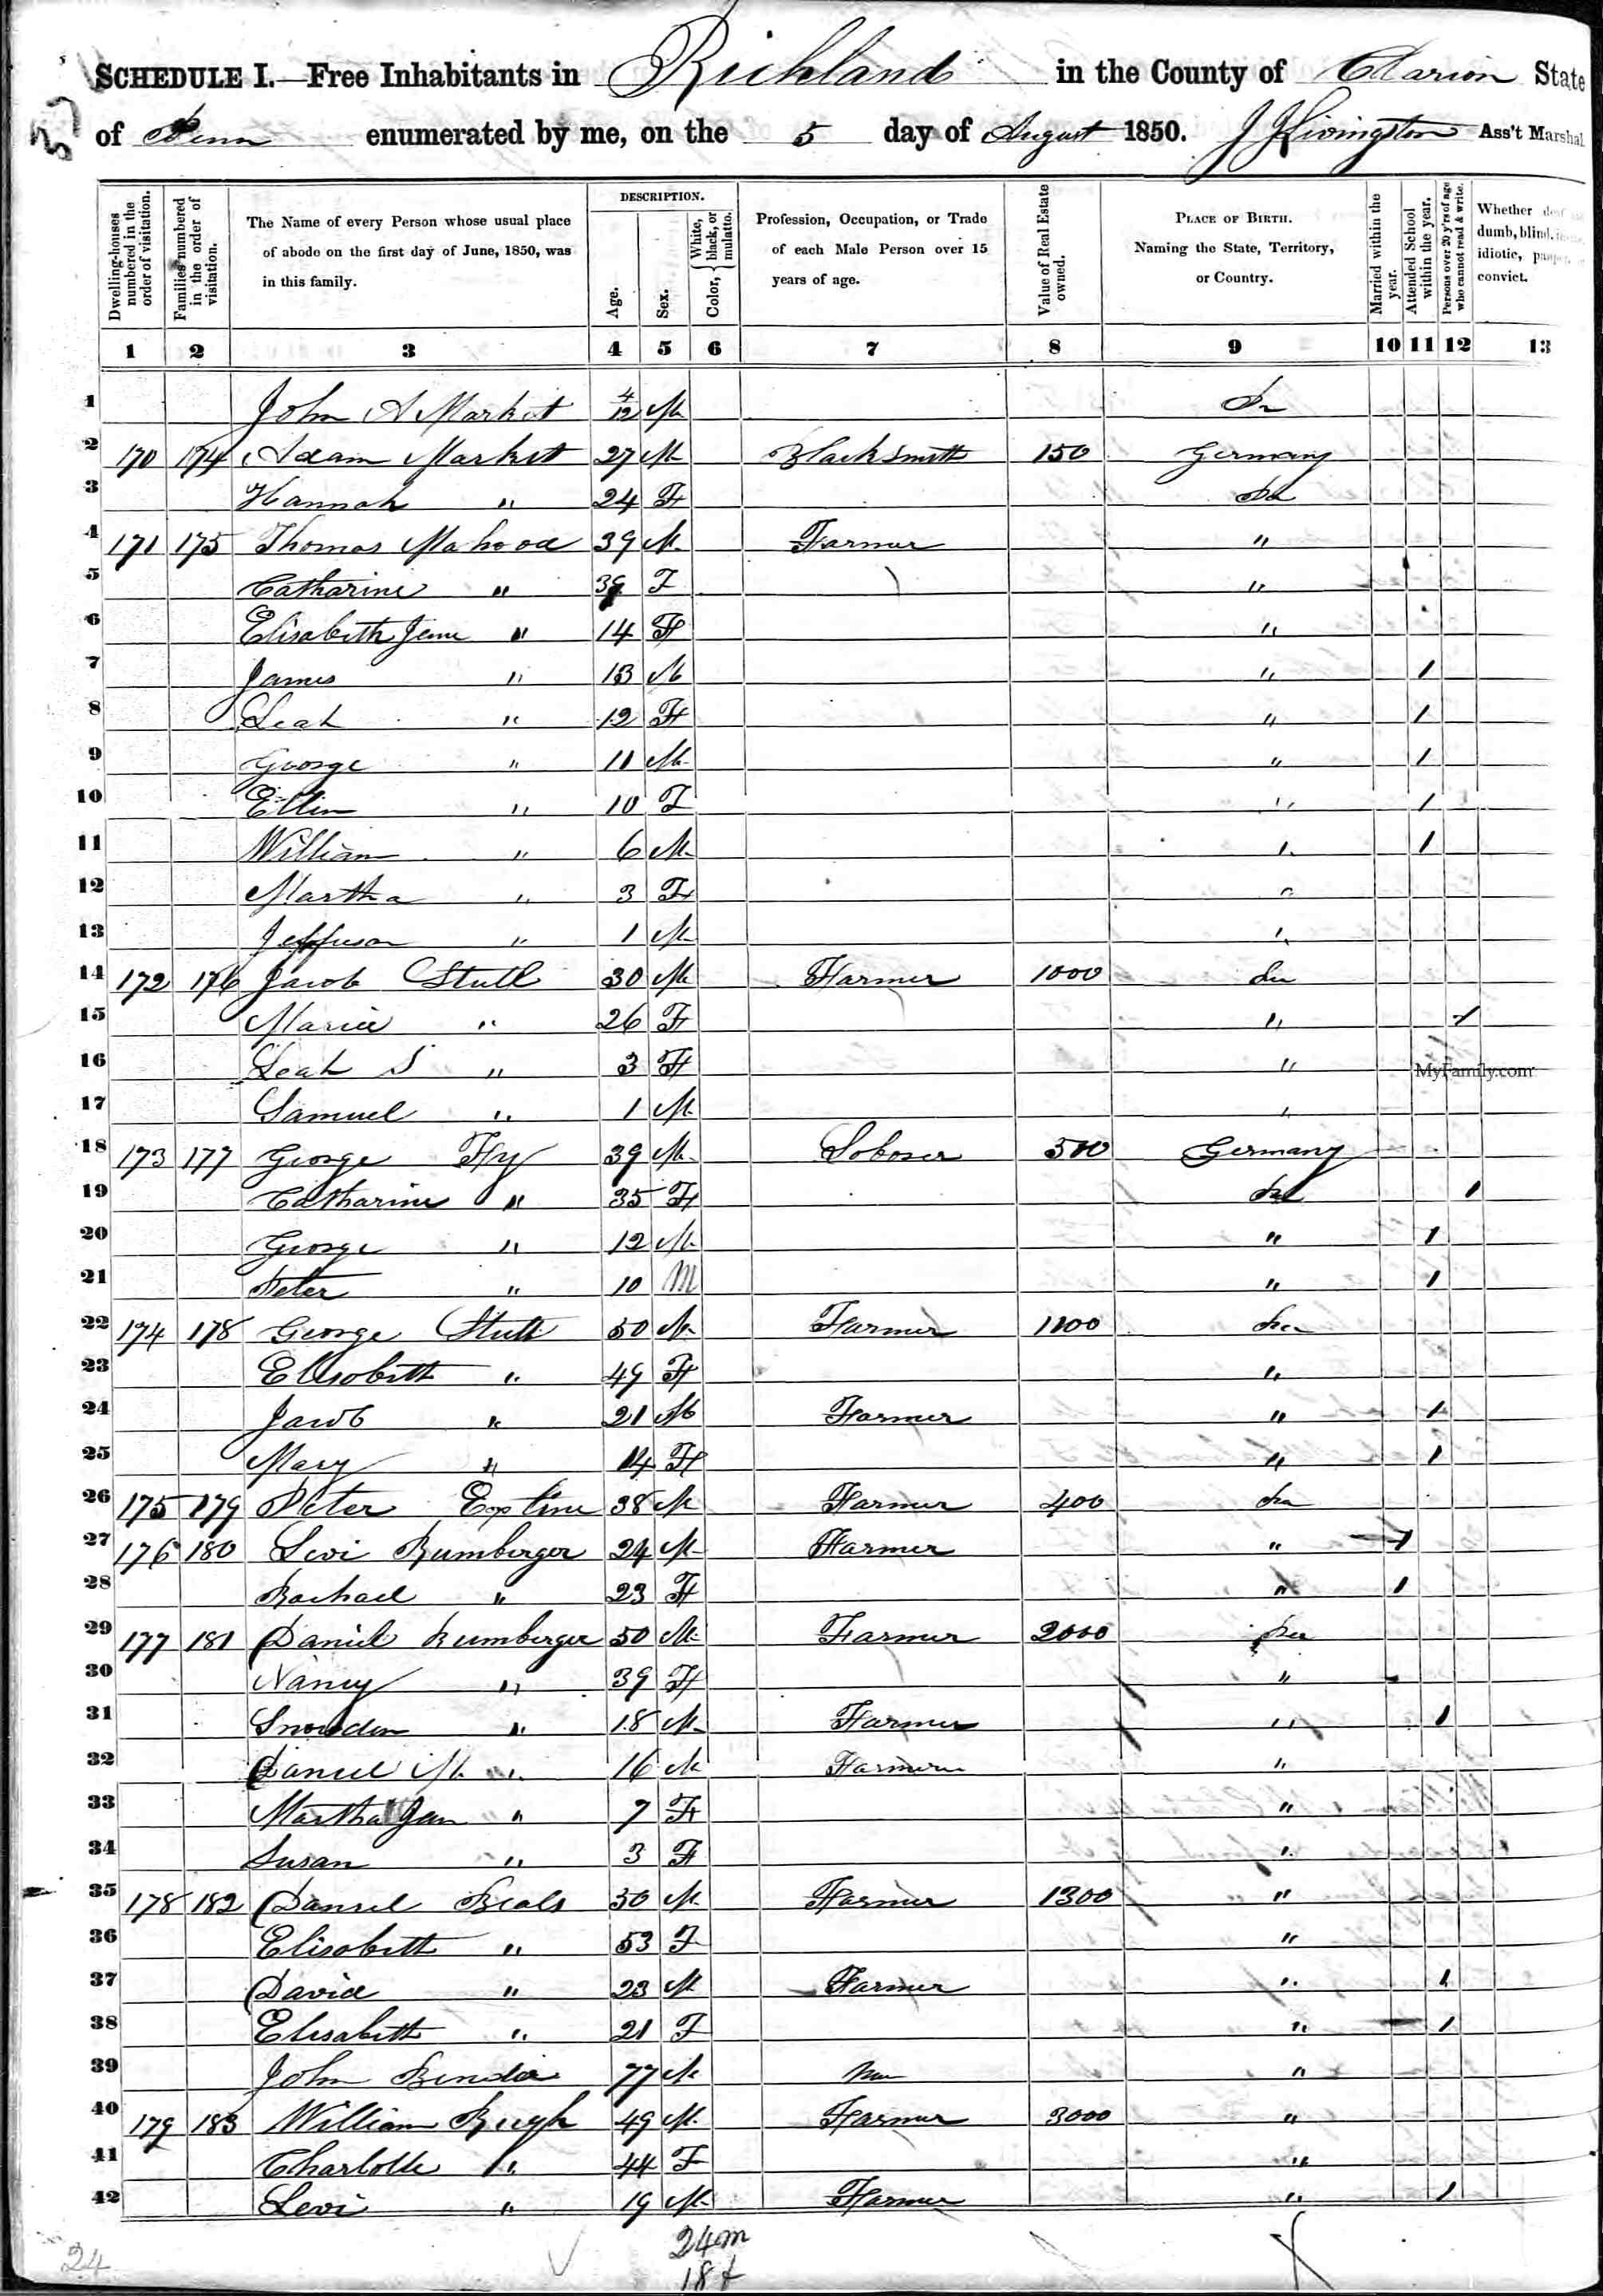 SCHEDULE I.—Free Inhabitants in Richland in the County of Clarion State
of Penn enumerated by me, on the 5 day of August 1850. J Livingston Ass't Marshal
Dwelling-houses numbered in the order of visitation.
Families numbered in the order of visitation.
The Name of every Person whose usual place of abode on the first day of June, 1850, was in this family.
DESCRIPTION.
Age.
Sex.
Color, { White, black, or mulatto.
Profession, Occupation, or Trade of each Male Person over 15 years of age.
Value of Real Estate owned.
PLACE OF BIRTH. Naming the State, Territory, or Country.
Married within the year.
Attended School within the year.
Persons over 20 y'rs of age who cannot read & write.
Whether deaf and dumb, blind, insane, idiotic, pauper, or convict.
1 2 3 4 5 6 7 8 9 10 11 12 13
1 John A Market 4/12 M
2 170 174 Adam Market 27 M Blacksmith 150 Germany
3 Hannah " 24 F
4 171 175 Thomas Mahood 39 M Farmer "
5 Catharine " 39 F "
6 Elisabeth Jane " 14 F "
7 James " 13 M " 1
8 Leah " 12 F " 1
9 George " 11 M " 1
10 Ellin " 10 F " 1
11 William " 6 M " 1
12 Martha " 3 F "
13 Jeffuson " 1 M "
14 172 176 Jacob Stutl 30 M Farmer 1000
15 Maria " 26 F " 1
16 Leah S " 3 F "
17 Samuel " 1 M "
18 173 177 George Fry 39 M Loborer 500 Germany
19 Catharine " 35 F 1
20 George " 12 M " 1
21 Peter " 10 M " 1
22 174 178 George Stutl 50 M Farmer 1100
23 Elisobeth " 49 F "
24 Jacob " 21 M Farmer " 1
25 Mary " 14 F " 1
26 175 179 Peter Exptine 38 M Farmer 400
27 176 180 Levi Bumberger 24 M Farmer " 1
28 Rachael " 23 F " 1
29 177 181 Daniel Bumberger 50 M Farmer 2000
30 Nancy " 39 F "
31 Snowden " 18 M Farmer " 1
32 Daniel M " 16 M Farmer "
33 Martha Jan " 7 F "
34 Susan " 3 F "
35 178 182 Daniel Beals 50 M Farmer 1300 "
36 Elisobeth " 53 F "
37 David " 23 M Farmer " 1
38 Elisabeth " 21 F " 1
39 John Bender 77 M "
40 179 183 William Bugh 49 M Farmer 3000 "
41 Charlotte " 44 F "
42 Levi " 19 M Farmer " 1
MyFamily.com
24 m
18 f
24